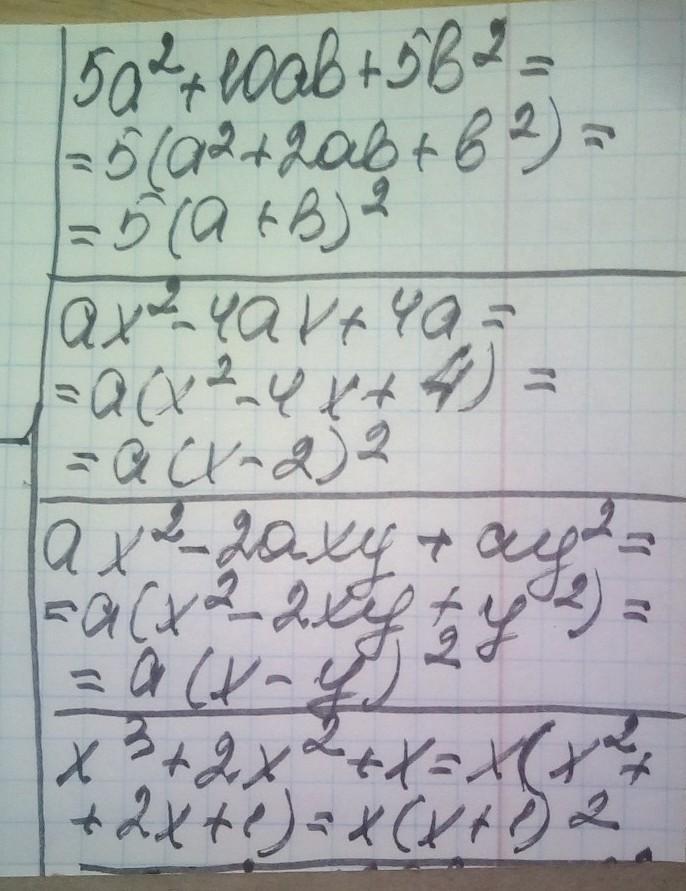 5a²+10ab+5b²=
=5(a²+2ab+b²)=
=5(a+b)²
ax²-4ax+4a=
=a(x²-4x+4)=
=a(x-2)²
ax²-2axy+ay²=
=a(x²-2xy+y²)=
=a(x-y)²
x³+2x²+x=x(x²+
+2x+1)=x(x+1)²